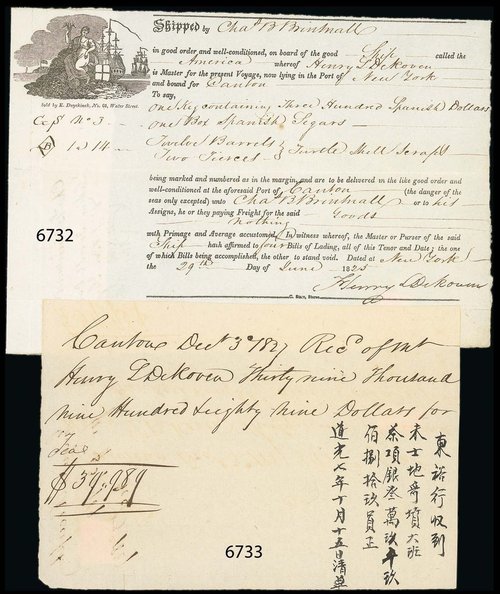 Shipped by Chaˢ B Brintnall
in good order and well-conditioned, on board of the good Ship called the
America whereof Henry L DeKoven
is Master for the present Voyage, now lying in the Port of New York
and bound for Canton
To say,
one Keg containing Three Hundred Spanish Dollars
one Box Spanish Segars
Twelve Barrels } Turtle Shell Scraps
Two Tierces
Sold by E. Duyckinck, No. 68, Water Street.
Nº 3
B 1 @ 14
being marked and numbered as in the margin, and are to be delivered in the like good order and
well-conditioned at the aforesaid Port of Canton (the danger of the
seas only excepted) unto Chaˢ B Brintnall or to his
Assigns, he or they paying Freight for the said Goods
Nothing
with Primage and Average accustomed. In witness whereof, the Master or Purser of the said
Ship hath affirmed to four Bills of Lading, all of this Tenor and Date; the one
of which Bills being accomplished, the other to stand void. Dated at New York
the 29th Day of June 1825
Henry L DeKoven
6732
Canton Decʳ 3ᵈ 1827 Recᵈ of Mr
Henry L DeKoven Thirty nine Thousand
nine Hundred & eighty nine Dollars for
Teas
$39,989
東裕行收到
未士地哥墳大班
茶項銀叁萬玖千玖
佰捌拾玖員正
道光七年十月十五日清單
6733